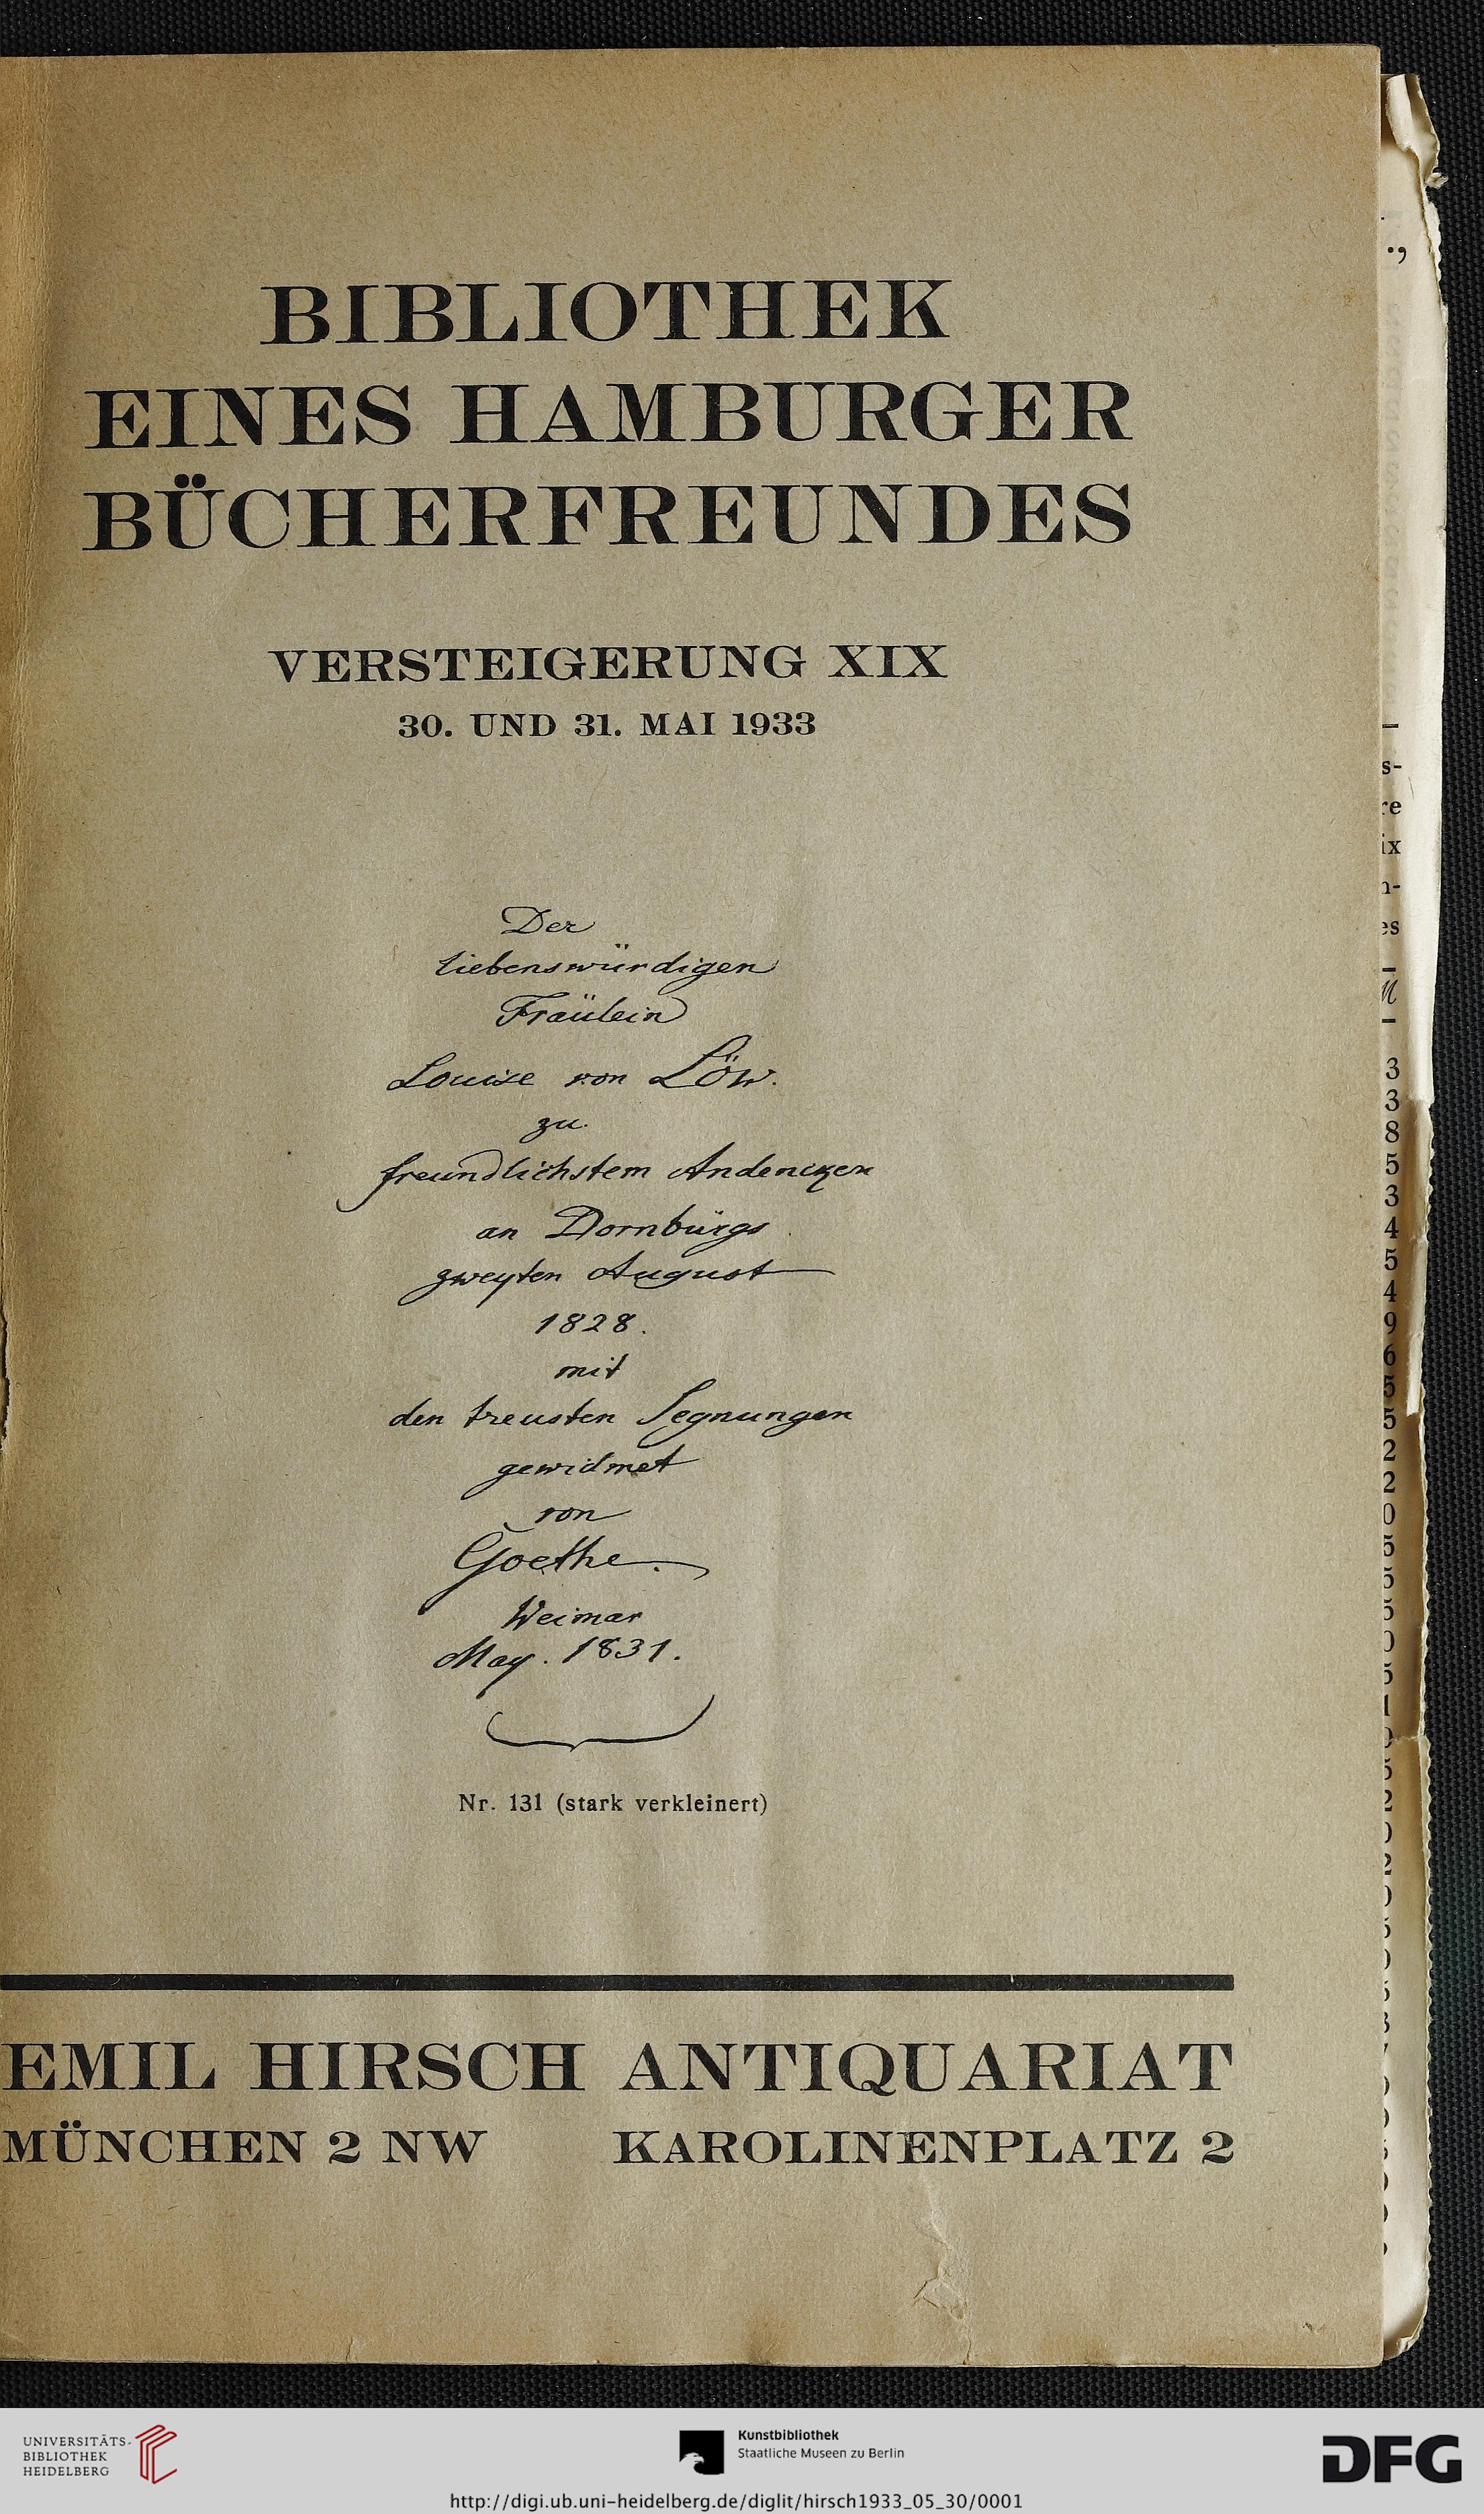 BIBLIOTHEK
EINES HAMBURGER
BÜCHERFREUNDES
VERSTEIGERUNG XIX
30. UND 31. MAI 1933
Der
liebenswürdigen
Fräulein
Louise von Löw.
zu
freundlichstem Andencken
an Dornburgs
zweyten August
1828.
mit
den treusten Segnungen
gewidmet
von
Goethe.
Weimar
May. 1831.
Nr. 131 (stark verkleinert)
EMIL HIRSCH ANTIQUARIAT
MÜNCHEN 2 NW KAROLINENPLATZ 2
UNIVERSITÄTS-
BIBLIOTHEK
HEIDELBERG
Kunstbibliothek
Staatliche Museen zu Berlin
DFG
http://digi.ub.uni-heidelberg.de/diglit/hirsch1933_05_30/0001